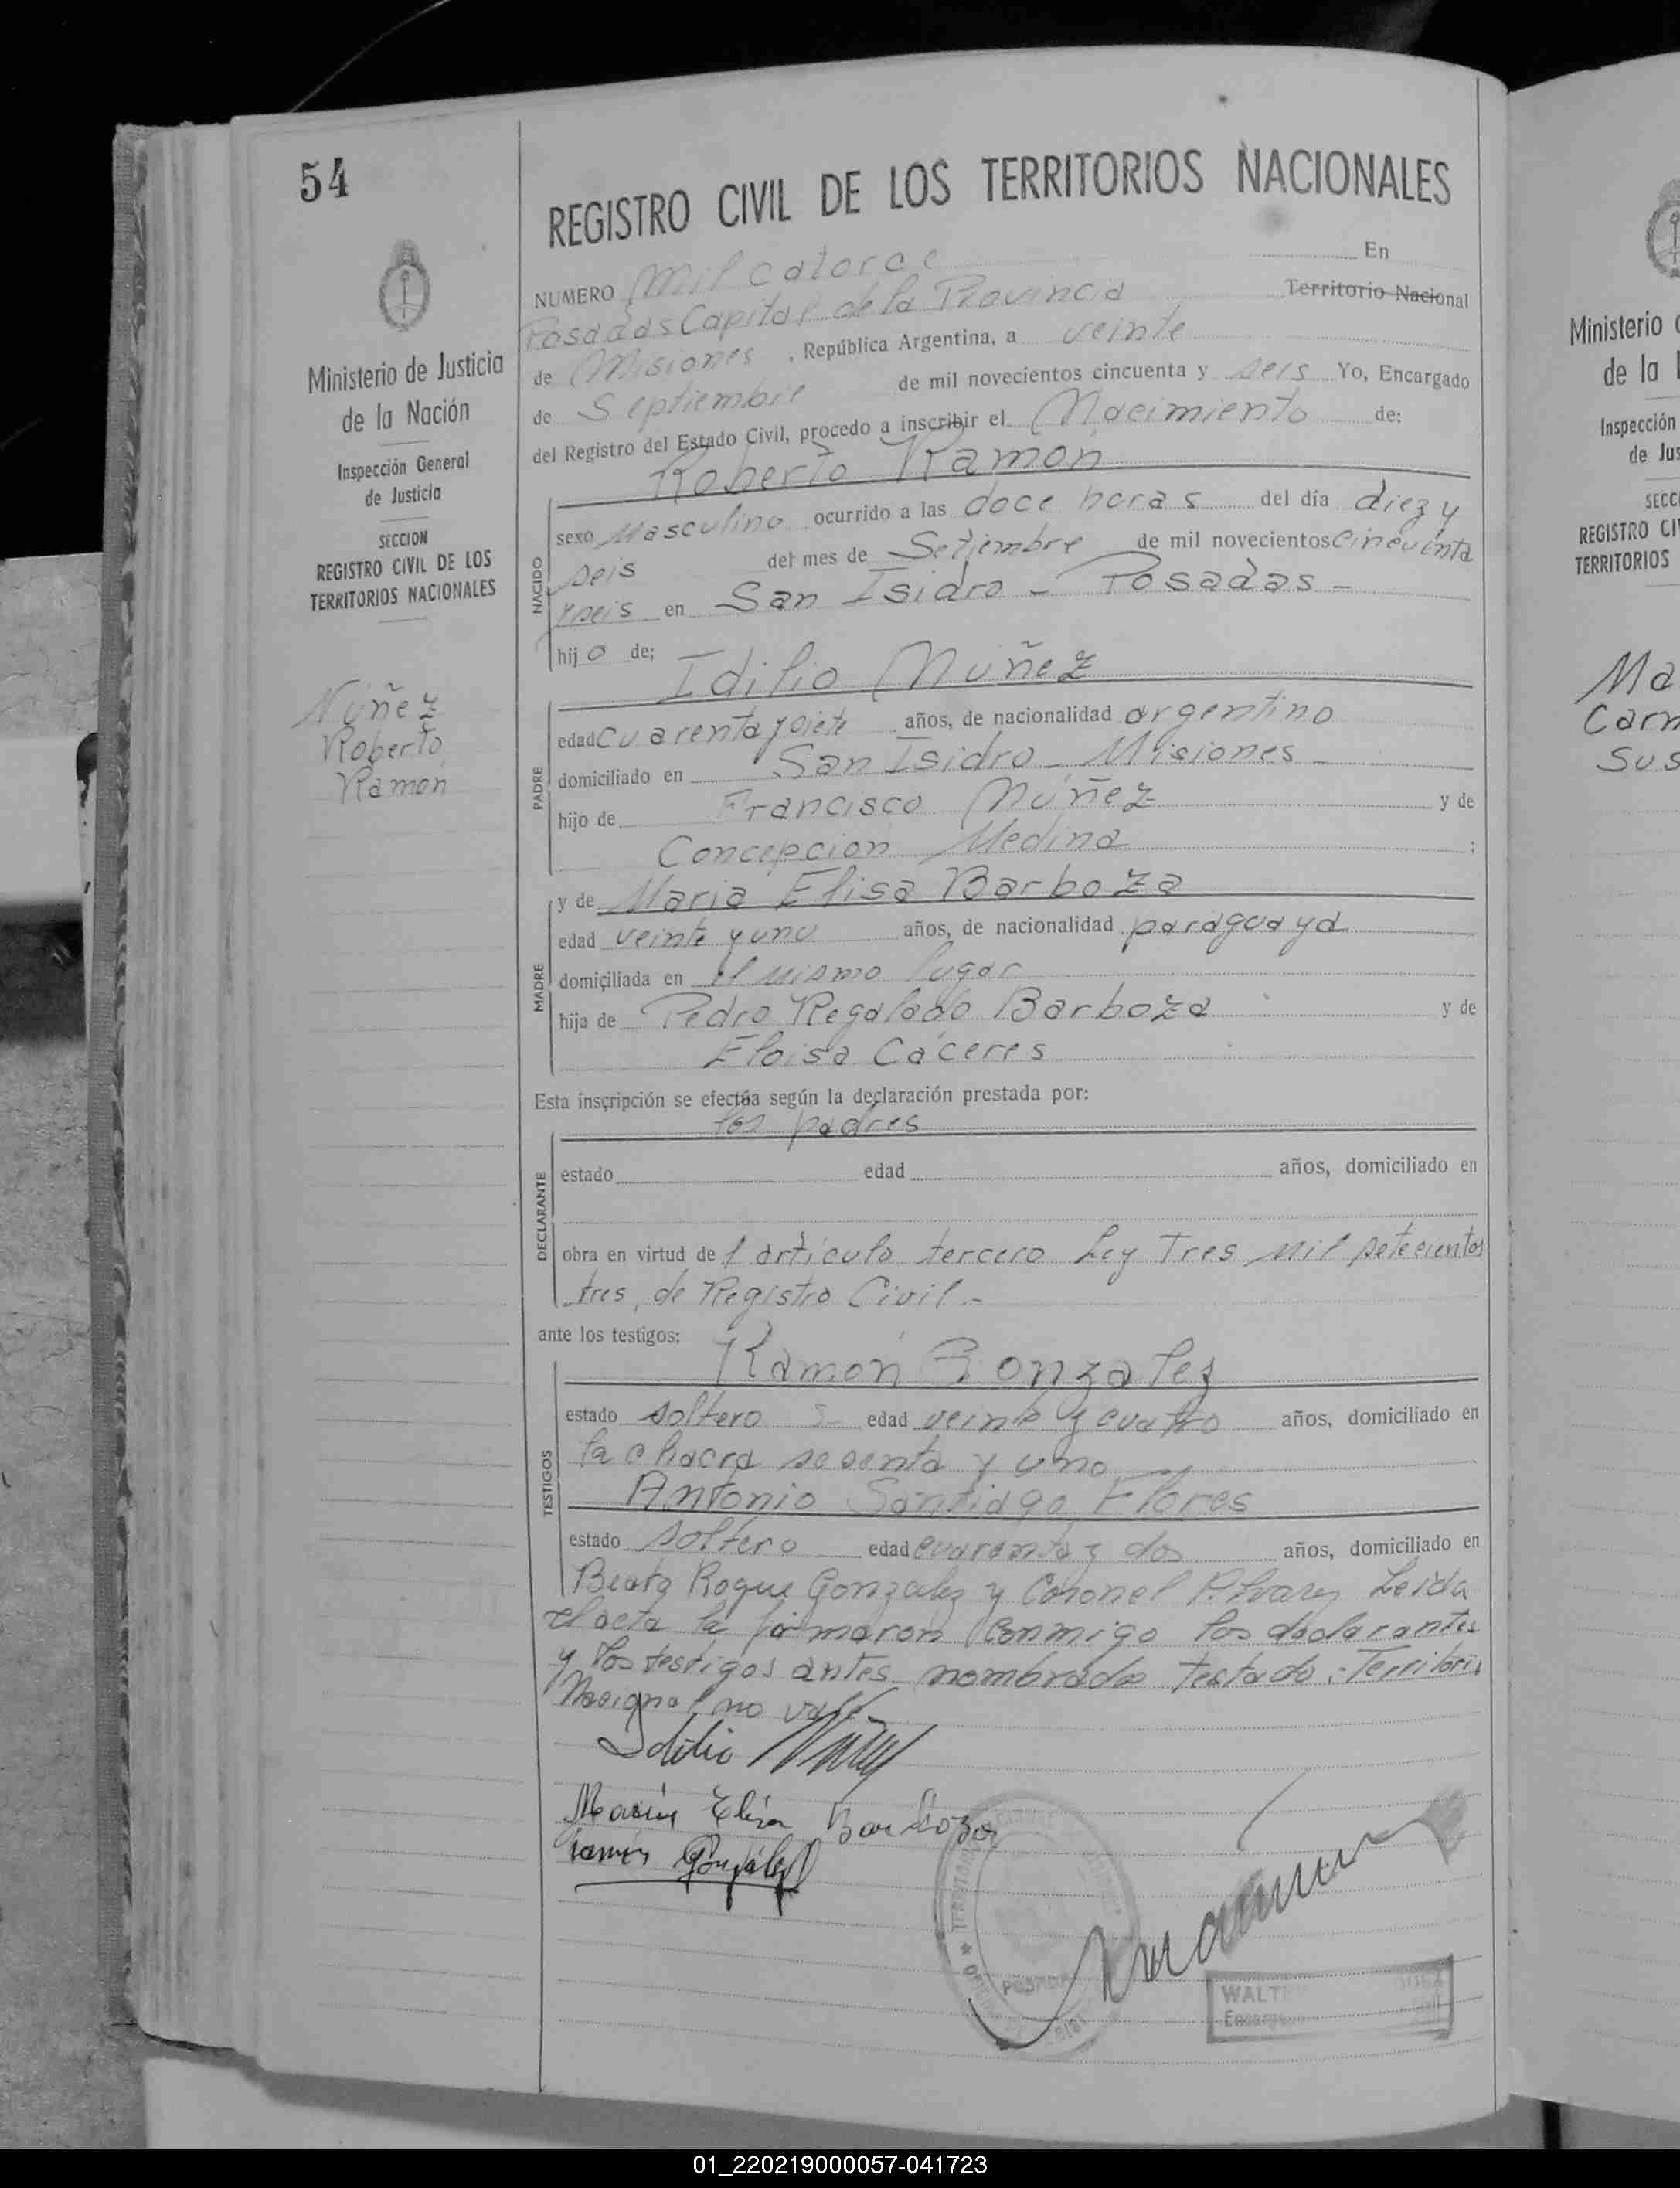 54
Ministerio de Justicia
de la Nación
Inspección General
de Justicia
SECCION
REGISTRO CIVIL DE LOS
TERRITORIOS NACIONALES
Núñez
Roberto
Ramón
REGISTRO CIVIL DE LOS TERRITORIOS NACIONALES
NUMERO Mil catorce En
Posadas Capital de la Provincia Territorio Nacional
de Misiones, República Argentina, a veinte
de Septiembre de mil novecientos cincuenta y seis Yo, Encargado
del Registro del Estado Civil, procedo a inscribir el Nacimiento de:
Roberto Ramón
NACIDO
sexo Masculino ocurrido a las doce horas del día diez y
seis del mes de Setiembre de mil novecientos cincuenta
y seis en San Isidro - Posadas -
hijo de:
Idilio Núñez
PADRE
edad cuarenta y siete años, de nacionalidad argentino
domiciliado en San Isidro - Misiones -
hijo de Francisco Núñez y de
Concepcion Medina ;
MADRE
y de Maria Elisa Barboza
edad veinte y uno años, de nacionalidad paraguaya
domiciliada en el mismo lugar
hija de Pedro Regalado Barboza y de
Eloisa Cáceres
Esta inscripción se efectúa según la declaración prestada por:
los padres
DECLARANTE
estado edad años, domiciliado en
obra en virtud del artículo tercero Ley Tres mil setecientos
tres, de Registro Civil.-
ante los testigos:
Ramón Gonzalez
TESTIGOS
estado soltero edad veinte y cuatro años, domiciliado en
la chacra sesenta y uno
Antonio Santiago Flores
estado soltero edad cuarenta y dos años, domiciliado en
Beato Roque Gonzalez y Coronel Alvarez Leida
el acta la firmaron conmigo los declarantes
y los testigos antes nombrado Testado: Territorio
Nacional no vale
Idilio Núñez
María Elisa Barboza
Ramón González
POSADAS
WALT
Encarg
Ministerio
de la
Inspección
de Jus
SECC
REGISTRO CI
TERRITORIOS
Ma
Carm
Sus
01_220219000057-041723